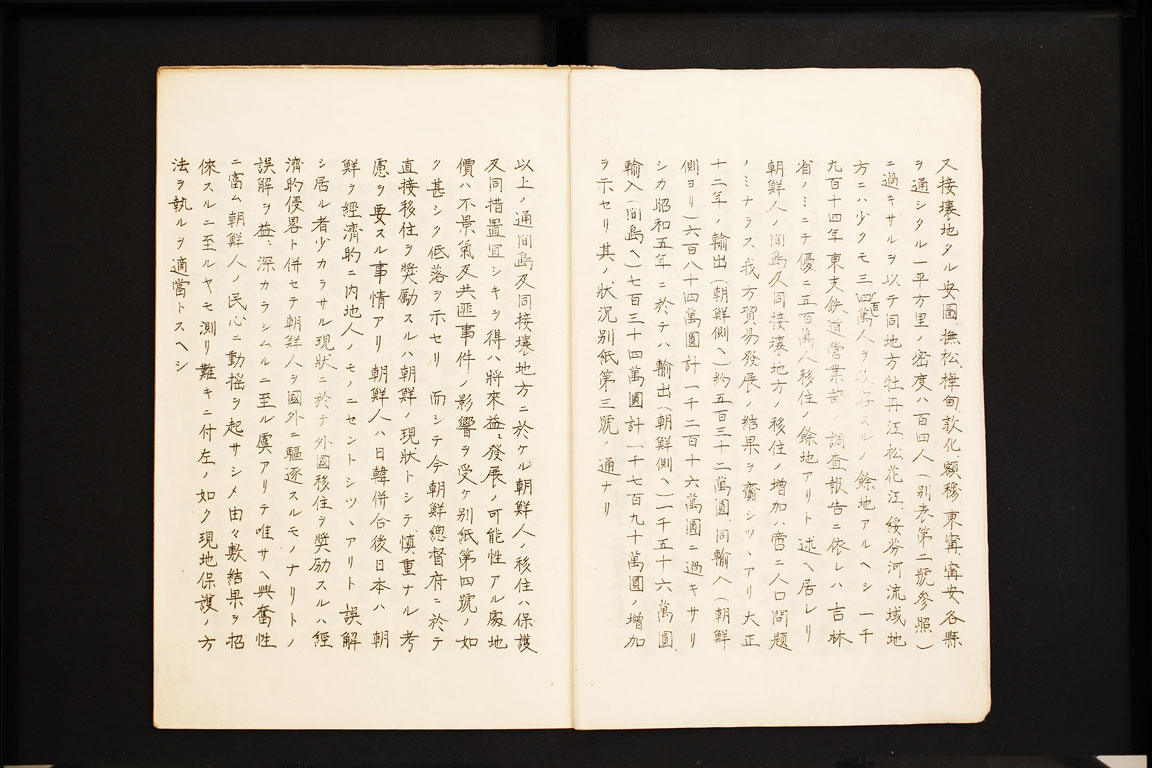 又接壤地タル安圖、撫松、樺甸、敦化、額穆、東寗、寗安各縣
ヲ通シタル一平方里ノ密度ハ百四人(別表第二號參照)
ニ過キサルヲ以テ同地方牡丹江、松花江、綏芬河流域地
方ニハ少クモ三四百萬人ヲ收容スルノ餘地アルヘシ一千
九百十四年東支鉄道營業部ノ調査報告ニ依レハ吉林
省ノミニテ優ニ五百萬人移住ノ餘地アリト述ヘ居レリ
朝鮮人ノ間島及同接壤地方ノ移住ノ増加ハ啻ニ人口問題
ノミナラス我方貿易發展ノ結果ヲ齎シツヽアリ大正
十二年ノ輸出(朝鮮側ヘ)約五百三十二萬圓、同輸入(朝鮮
側ヨリ)六百八十四萬圓計一千二百十六萬圓ニ過キサリ
シカ昭和五年ニ於テハ輸出(朝鮮側ヘ)一千五十六萬圓
輸入(間島ヘ)七百三十四萬圓計一千七百九十萬圓ノ増加
ヲ示セリ其ノ狀況別紙第三號ノ通ナリ
以上ノ通間島及同接壤地方ニ於ケル朝鮮人ノ移住ハ保護
及同措置宜シキヲ得ハ將來益々發展ノ可能性アル處地
價ハ不景氣及共匪事件ノ影響ヲ受ケ別紙第四號ノ如
ク甚シク低落ヲ示セリ 而シテ今朝鮮總督府ニ於テ
直接移住ヲ奬勵スルハ朝鮮ノ現狀トシテ慎重ナル考
慮ヲ要スル事情アリ朝鮮人ハ日韓併合後日本ハ朝
鮮ヲ經濟的ニ内地人ノモノニセントシツヽアリト誤解
シ居ル者少カラサル現狀ニ於テ外國移住ヲ奬励スルハ經
濟的侵畧ト併セテ朝鮮人ヲ國外ニ驅逐スルモノナリトノ
誤解ヲ益々深カラシムルニ至ル虞アリテ唯サヘ興奮性
ニ富ム朝鮮人ノ民心ニ動搖ヲ起サシメ由々敷結果ヲ招
倈スルニ至ルヤモ測リ難キニ付左ノ如ク現地保護ノ方
法ヲ執ルヲ適當トスヘシ